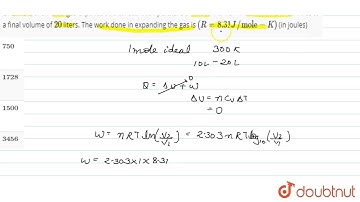 a final volume of 20 liters. The work done in expanding the gas is (R = 8.31 J / mole - K) (in joules)
750
1728
1500
3456
1mole ideal 300K
10L - 20L
Q = ΔU + W
0
ΔU = nCvΔT
= 0
W = nRT ln(V2/V1) = 2.303nRT log10(V2/V1)
W = 2.303×1×8.31
doubtnut